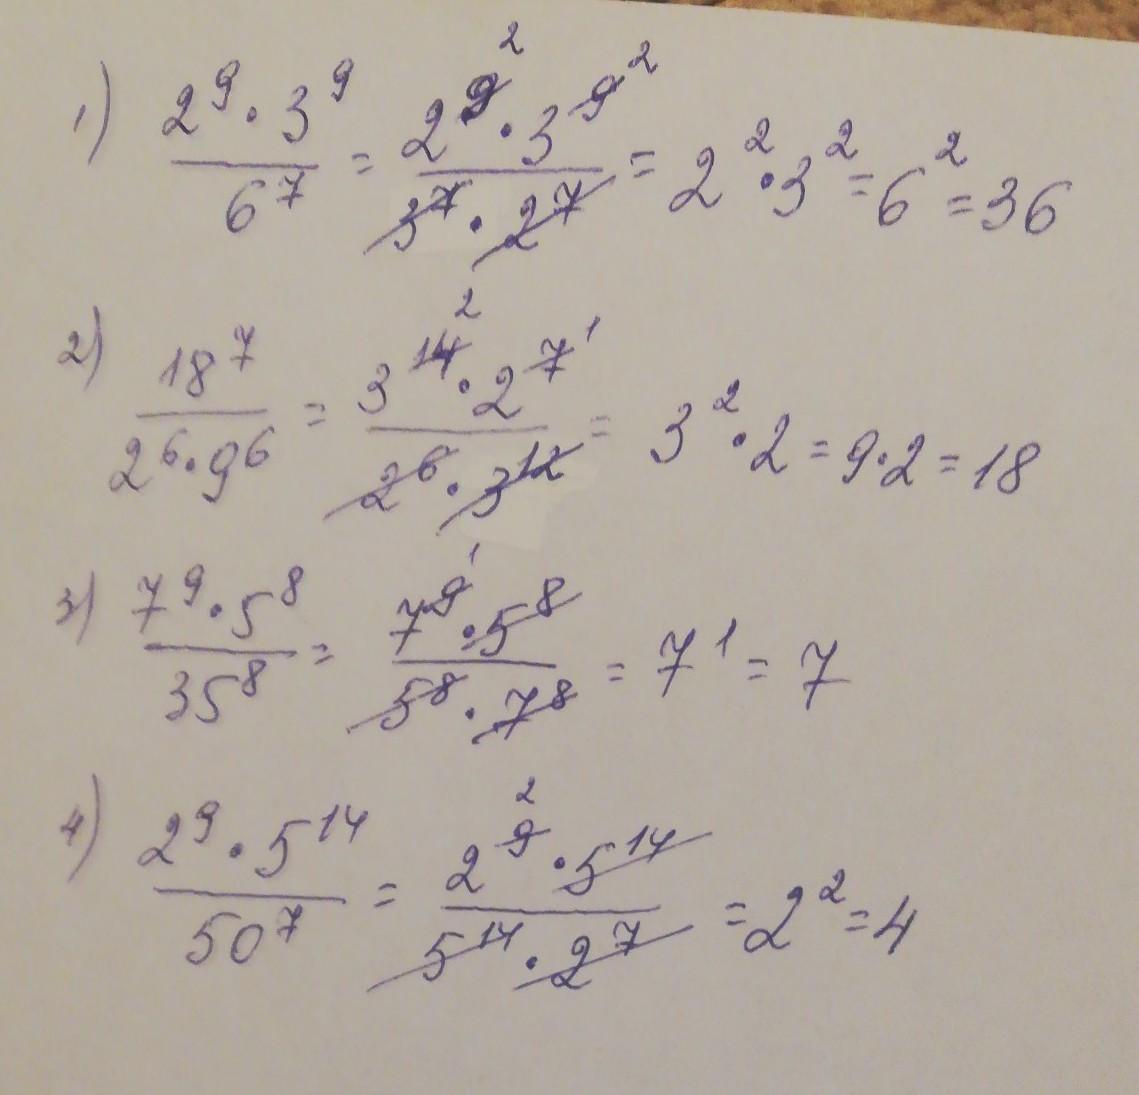 1) 2⁹·3⁹/6⁷ = 2⁹ ²·3⁹ ²/3⁷·2⁷ = 2²·3² = 6² = 36
2) 18⁷/2⁶·9⁶ = 3¹⁴ ²·2⁷ ¹/2⁶·3¹² = 3²·2 = 9·2 = 18
3) 7⁹·5⁸/35⁸ = 7⁹ ¹·5⁸/5⁸·7⁸ = 7¹ = 7
4) 2⁹·5¹⁴/50⁷ = 2⁹ ²·5¹⁴/5¹⁴·2⁷ = 2² = 4